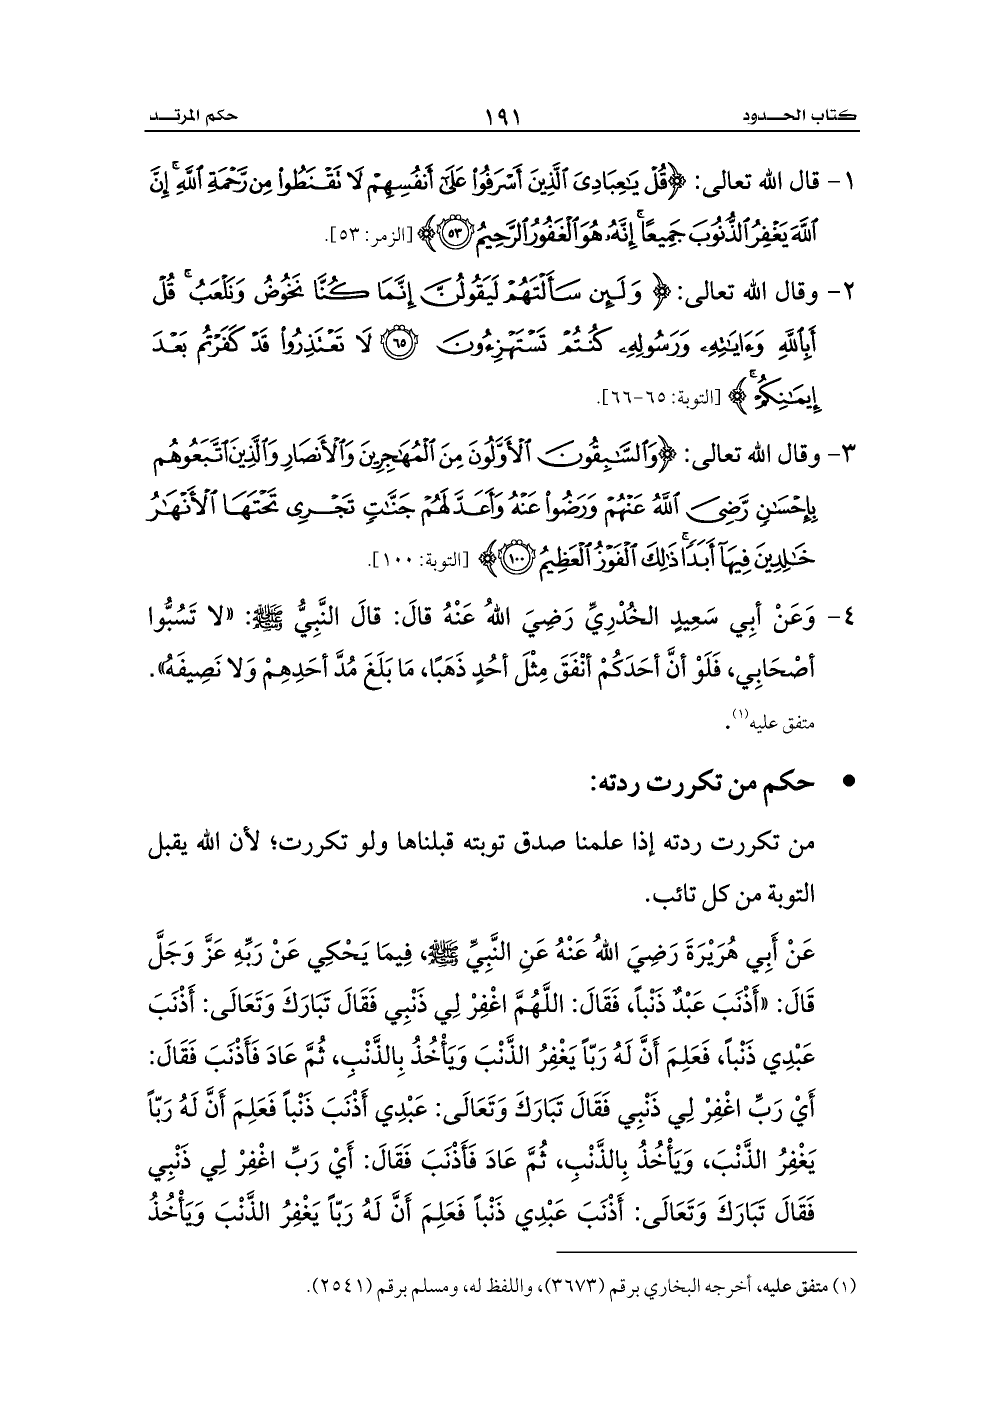 كتاب الحـــدود ١٩١ حكم المرتـــد
١- قال الله تعالى: ﴿قُلْ يَٰعِبَادِىَ ٱلَّذِينَ أَسْرَفُوا۟ عَلَىٰٓ أَنفُسِهِمْ لَا تَقْنَطُوا۟ مِن رَّحْمَةِ ٱللَّهِ ۚ إِنَّ
ٱللَّهَ يَغْفِرُ ٱلذُّنُوبَ جَمِيعًا ۚ إِنَّهُۥ هُوَ ٱلْغَفُورُ ٱلرَّحِيمُ ٥٣﴾ [الزمر: ٥٣].
٢- وقال الله تعالى: ﴿وَلَئِن سَأَلْتَهُمْ لَيَقُولُنَّ إِنَّمَا كُنَّا نَخُوضُ وَنَلْعَبُ ۚ قُلْ
أَبِٱللَّهِ وَءَايَٰتِهِۦ وَرَسُولِهِۦ كُنتُمْ تَسْتَهْزِءُونَ ٦٥ لَا تَعْتَذِرُوا۟ قَدْ كَفَرْتُم بَعْدَ
إِيمَٰنِكُمْ ۚ﴾ [التوبة: ٦٥-٦٦].
٣- وقال الله تعالى: ﴿وَٱلسَّٰبِقُونَ ٱلْأَوَّلُونَ مِنَ ٱلْمُهَٰجِرِينَ وَٱلْأَنصَارِ وَٱلَّذِينَ ٱتَّبَعُوهُم
بِإِحْسَٰنٍ رَّضِىَ ٱللَّهُ عَنْهُمْ وَرَضُوا۟ عَنْهُ وَأَعَدَّ لَهُمْ جَنَّٰتٍ تَجْرِى تَحْتَهَا ٱلْأَنْهَٰرُ
خَٰلِدِينَ فِيهَآ أَبَدًا ۚ ذَٰلِكَ ٱلْفَوْزُ ٱلْعَظِيمُ ١٠٠﴾ [التوبة: ١٠٠].
٤- وَعَنْ أبِي سَعِيدٍ الخُدْرِيِّ رَضِيَ اللهُ عَنْهُ قالَ: قالَ النَّبِيُّ ﷺ: «لا تَسُبُّوا
أصْحَابِي، فَلَوْ أنَّ أحَدَكُمْ أنْفَقَ مِثْلَ أحُدٍ ذَهَبًا، مَا بَلَغَ مُدَّ أحَدِهِمْ وَلا نَصِيفَهُ».
متفق عليه(١).
• حكم من تكررت ردته:
من تكررت ردته إذا علمنا صدق توبته قبلناها ولو تكررت؛ لأن الله يقبل
التوبة من كل تائب.
عَنْ أَبِي هُرَيْرَةَ رَضِيَ اللهُ عَنْهُ عَنِ النَّبِيِّ ﷺ، فِيمَا يَحْكِي عَنْ رَبِّهِ عَزَّ وَجَلَّ
قَالَ: «أَذْنَبَ عَبْدٌ ذَنْباً، فَقَالَ: اللَّهُمَّ اغْفِرْ لِي ذَنْبِي فَقَالَ تَبَارَكَ وَتَعَالَى: أَذْنَبَ
عَبْدِي ذَنْباً، فَعَلِمَ أَنَّ لَهُ رَبّاً يَغْفِرُ الذَّنْبَ وَيَأْخُذُ بِالذَّنْبِ، ثُمَّ عَادَ فَأَذْنَبَ فَقَالَ:
أَيْ رَبِّ اغْفِرْ لِي ذَنْبِي فَقَالَ تَبَارَكَ وَتَعَالَى: عَبْدِي أَذْنَبَ ذَنْباً فَعَلِمَ أَنَّ لَهُ رَبّاً
يَغْفِرُ الذَّنْبَ، وَيَأْخُذُ بِالذَّنْبِ، ثُمَّ عَادَ فَأَذْنَبَ فَقَالَ: أَيْ رَبِّ اغْفِرْ لِي ذَنْبِي
فَقَالَ تَبَارَكَ وَتَعَالَى: أَذْنَبَ عَبْدِي ذَنْباً فَعَلِمَ أَنَّ لَهُ رَبّاً يَغْفِرُ الذَّنْبَ وَيَأْخُذُ
(١) متفق عليه، أخرجه البخاري برقم (٣٦٧٣)، واللفظ له، ومسلم برقم (٢٥٤١).